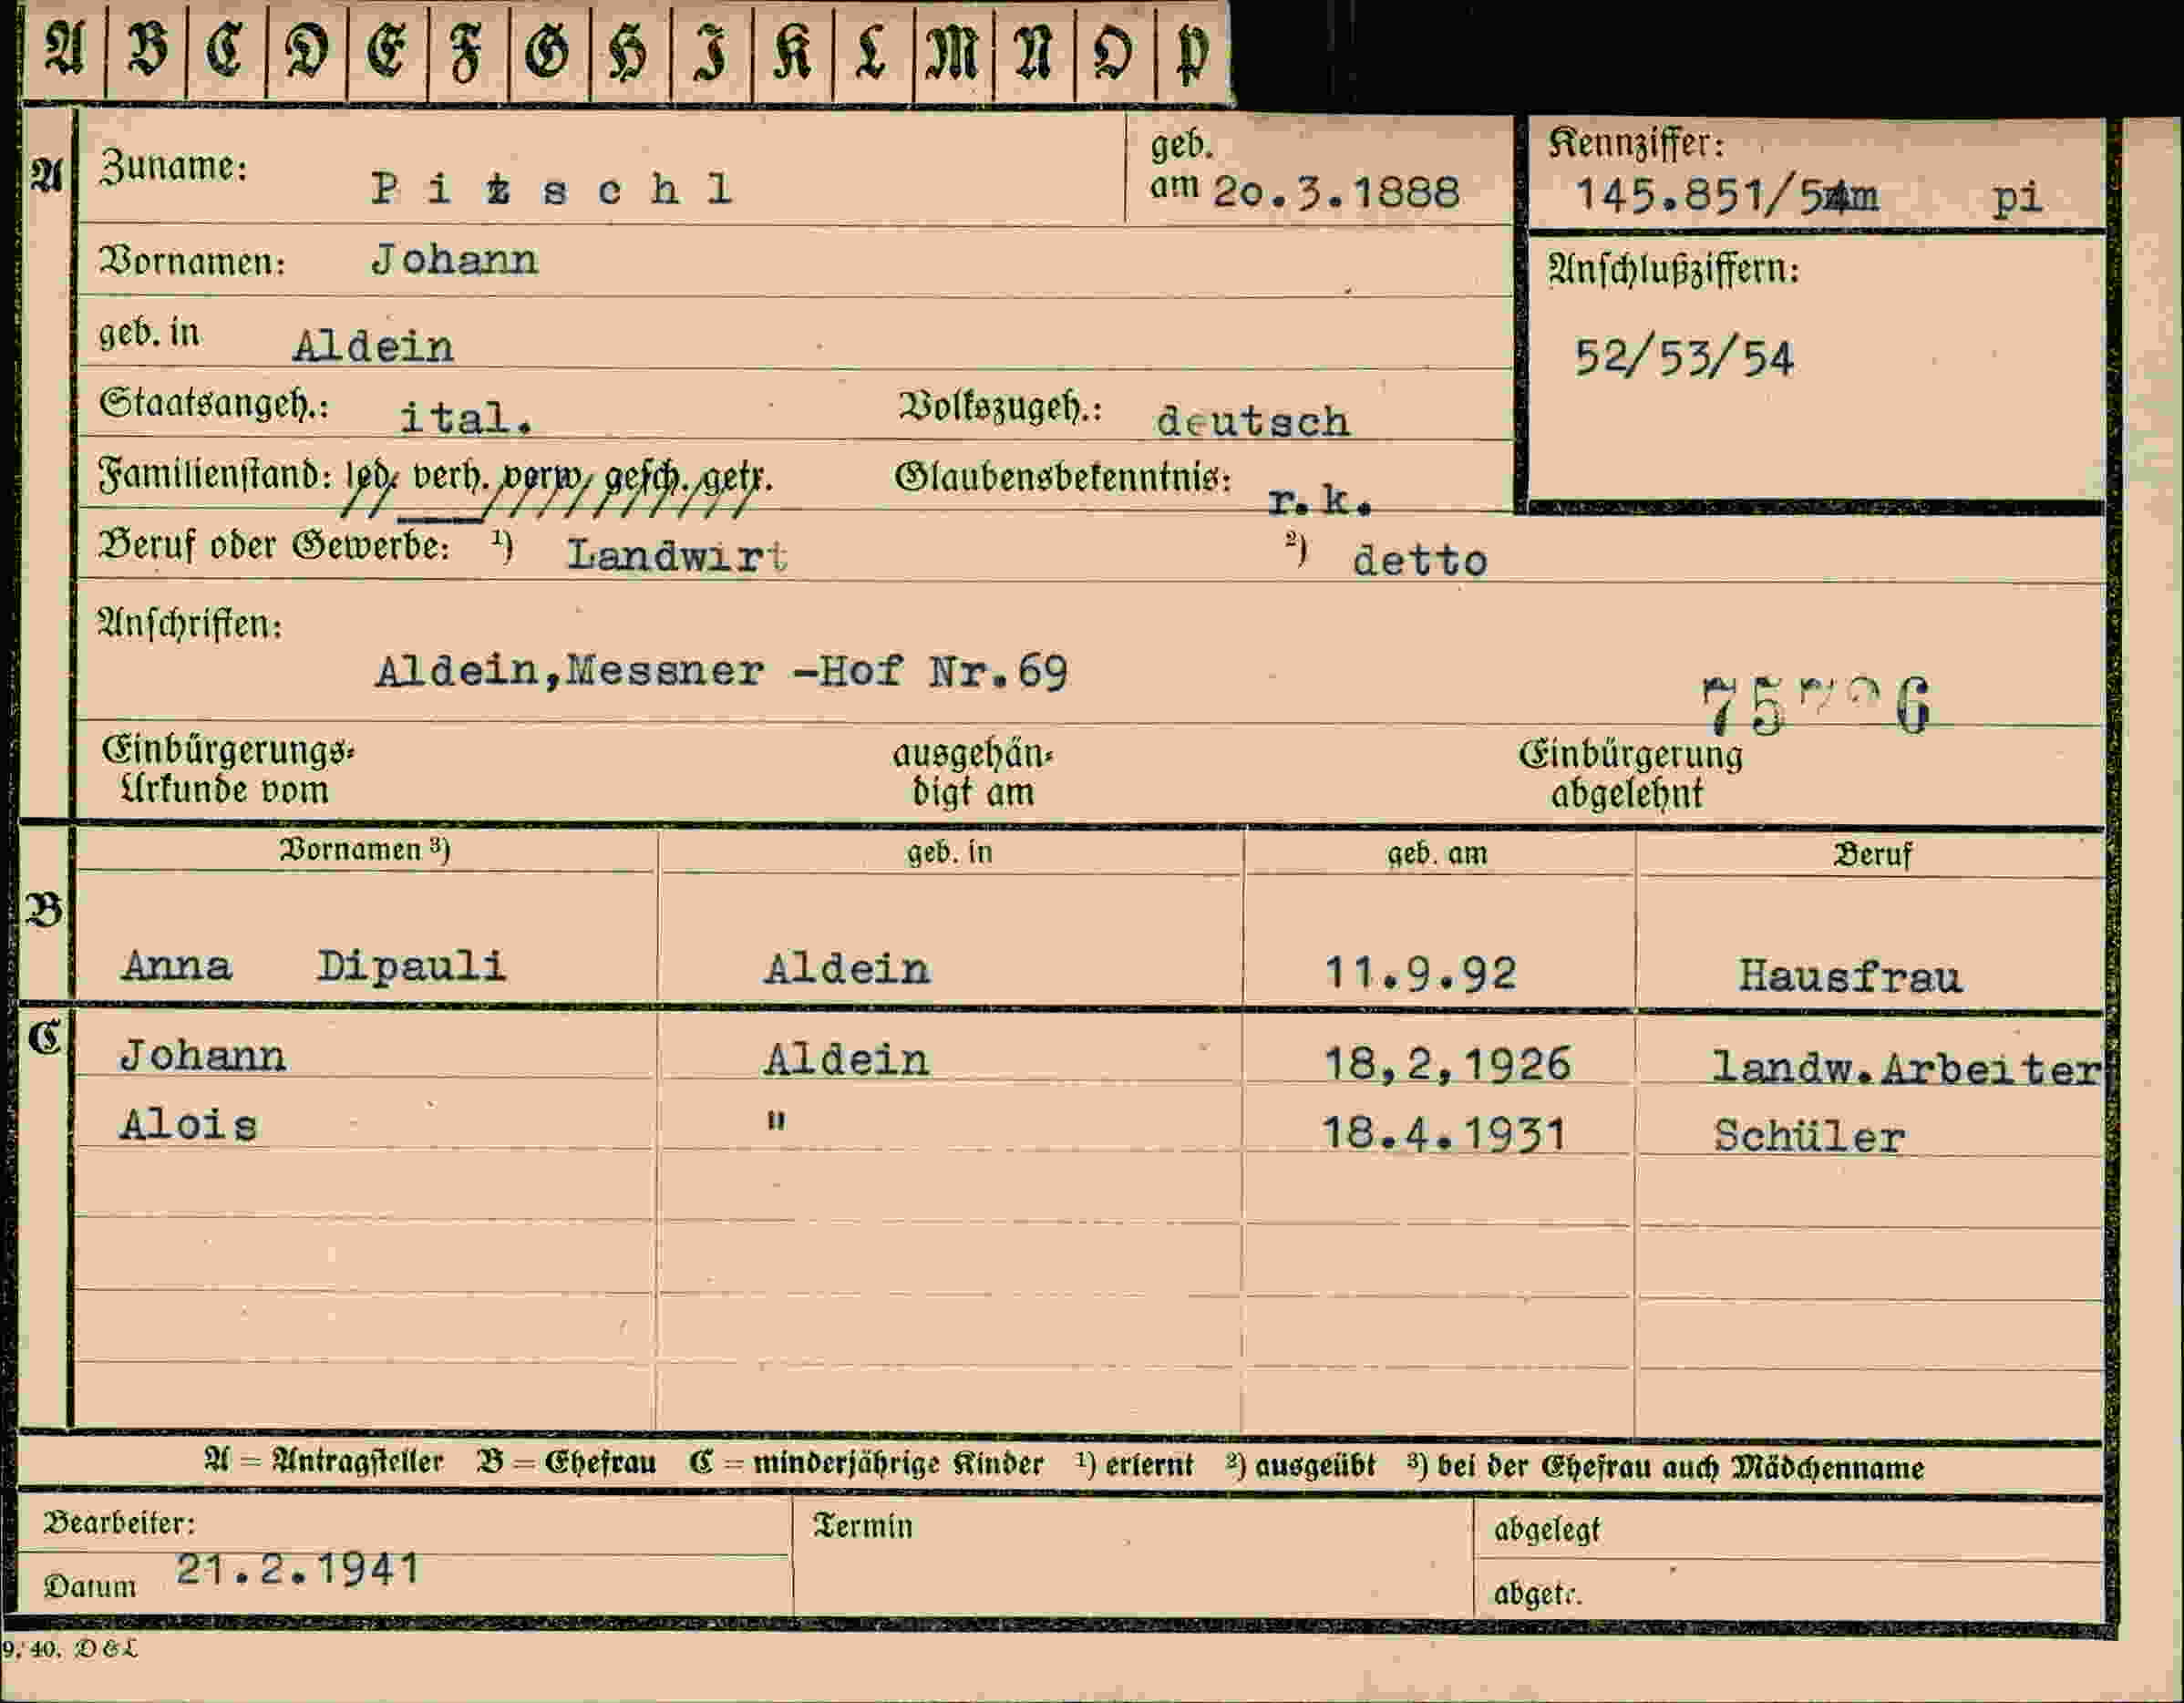 A B C D E F G H I K L M N O P
A
Zuname: Pitschl
geb. am 20.3.1888
Kennziffer: 145.851/54m pi
Vornamen: Johann
Anschlußziffern:
52/53/54
geb. in Aldein
Staatsangeh.: ital. Volkszugeh.: deutsch
Familienstand: led. verh. verw. gesch. getr. Glaubensbekenntnis: r.k.
Beruf oder Gewerbe: ¹) Landwirt ²) detto
Anschriften:
Aldein,Messner -Hof Nr.69
Einbürgerungs-
Urkunde vom
ausgehän-
digt am
Einbürgerung
abgelehnt
Vornamen ³) geb. in geb. am Beruf
B
Anna Dipauli Aldein 11.9.92 Hausfrau
C
Johann Aldein 18,2,1926 landw.Arbeiter
Alois " 18.4.1931 Schüler
A = Antragsteller B = Ehefrau C = minderjährige Kinder ¹) erlernt ²) ausgeübt ³) bei der Ehefrau auch Mädchenname
Bearbeiter:
Datum 21.2.1941
Termin
abgelegt
abgetr.
9. 40. D & L